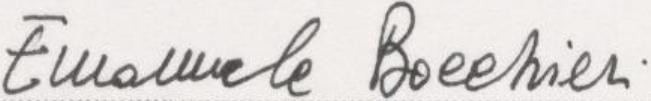 Emanuele Bocchieri